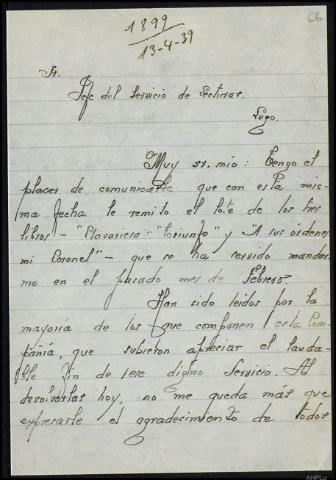 66
1899
13-4-39
Sr.
Jefe del Servicio de Lecturas.
Lugo.
Muy sr. mío: Tengo el
placer de comunicarle que con esta mis-
ma fecha le remito el lote de los tres
libros - "Clavariera" "Triunfo" y "A sus órdenes
mi Coronel" - que se ha servido mandar-
me en el pasado mes de Febrero.
Han sido leídos por la
mayoría de los que componen esta Com-
pañia, que subieron apreciar el lauda-
ble fin de ese digno Servicio. Al
devolverlas hoy, no me queda más que
expresarle el agradecimiento de todos
AHPLU